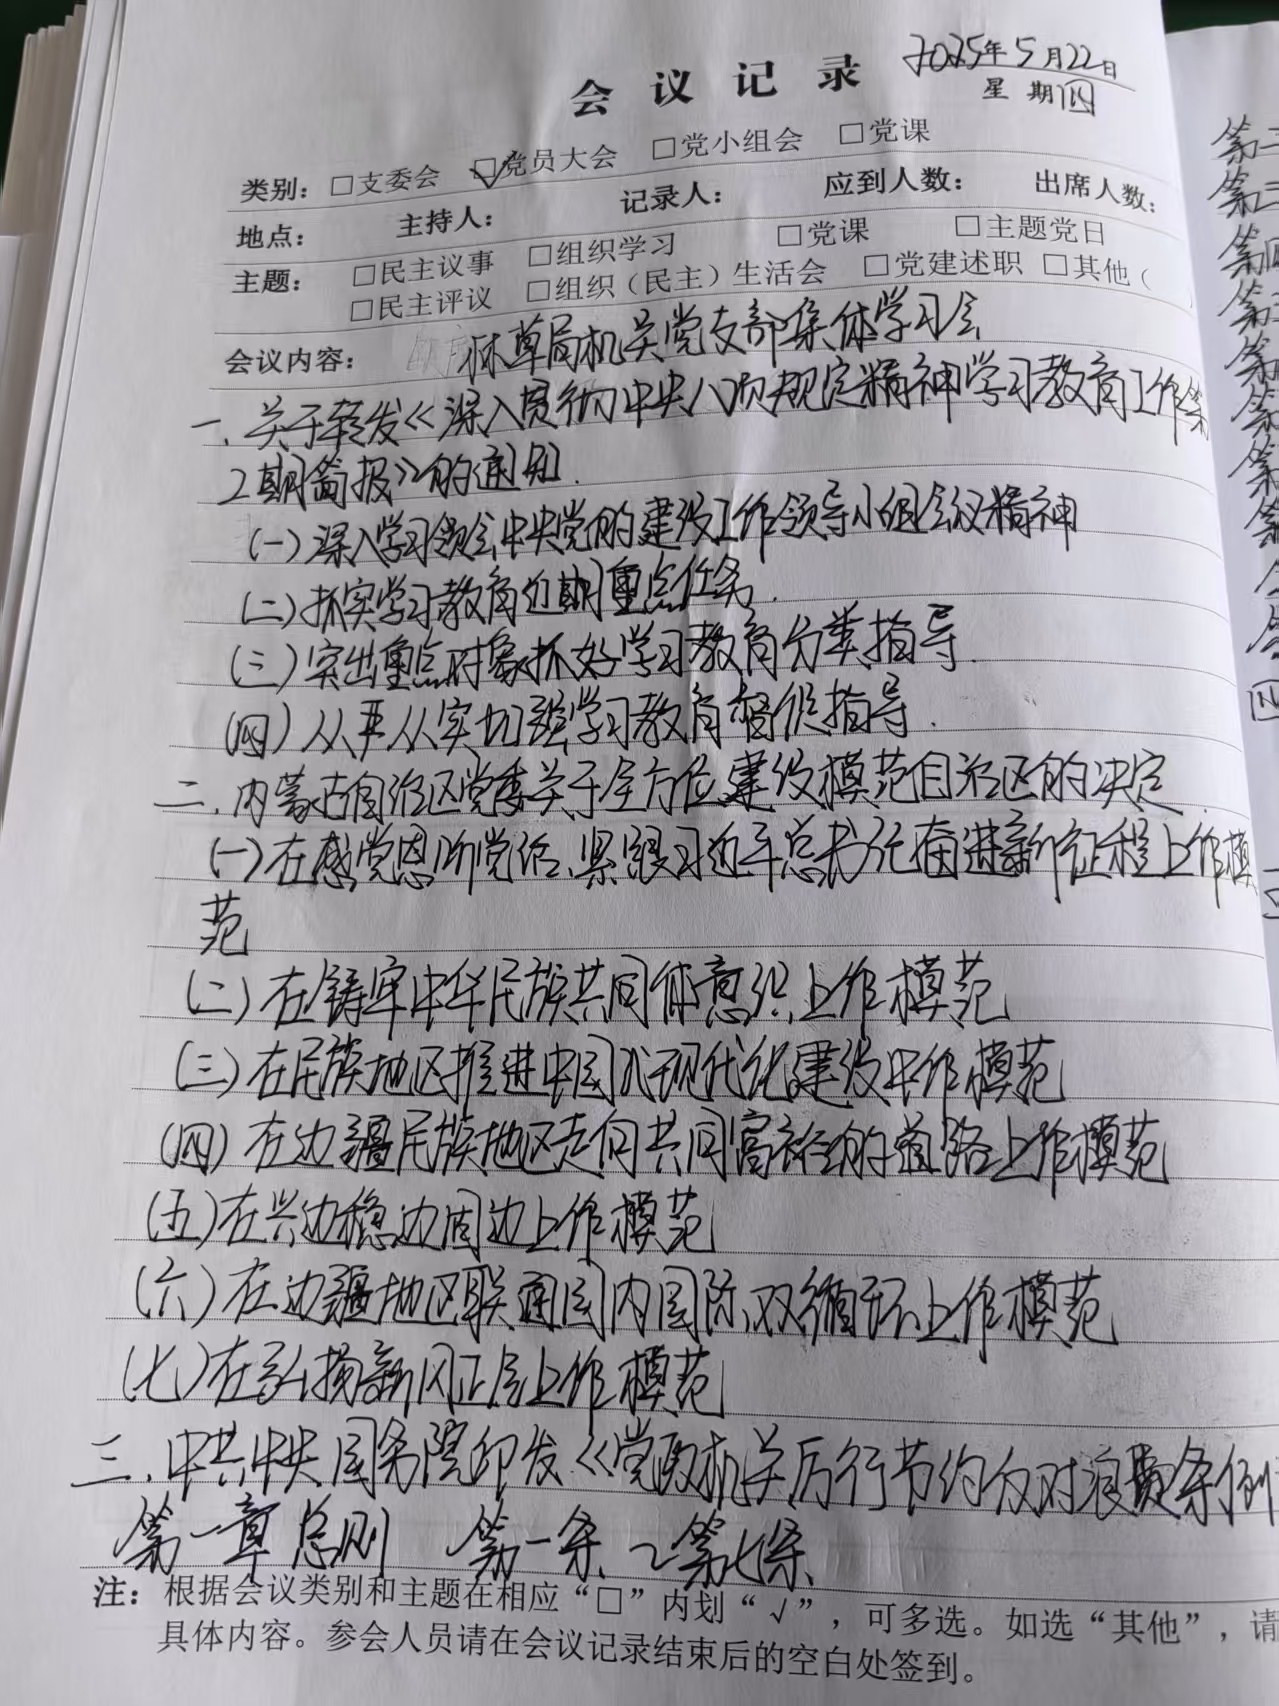 会议记录
2025年5月22日
星期四
类别：□支委会 ☑党员大会 □党小组会 □党课
地点： 主持人： 记录人： 应到人数： 出席人数：
主题： □民主议事 □组织学习 □党课 □主题党日
□民主评议 □组织（民主）生活会 □党建述职 □其他（
会议内容： 林草局机关党支部集体学习会
一、关于转发《深入贯彻中央八项规定精神学习教育工作第
2期简报》的通知.
(一)深入学习领会中央党的建设工作领导小组会议精神
(二)抓实学习教育近期重点任务.
(三)突出重点对象抓好学习教育分类指导.
(四)从严从实加强学习教育督促指导.
二、内蒙古自治区党委关于全方位建设模范自治区的决定
(一)在感党恩听党话、紧跟习近平总书记奋进新征程上作模
范
(二)在铸牢中华民族共同体意识上作模范
(三)在民族地区推进中国式现代化建设中作模范
(四)在边疆民族地区走向共同富裕的道路上作模范
(五)在兴边稳边固边上作模范
(六)在边疆地区联通国内国际双循环上作模范
(七)在弘扬新风正气上作模范
三、中共中央国务院印发《党政机关厉行节约反对浪费条例
第一章总则 第一条~第七条
注：根据会议类别和主题在相应“□”内划“√”，可多选。如选“其他”，请
具体内容。参会人员请在会议记录结束后的空白处签到。